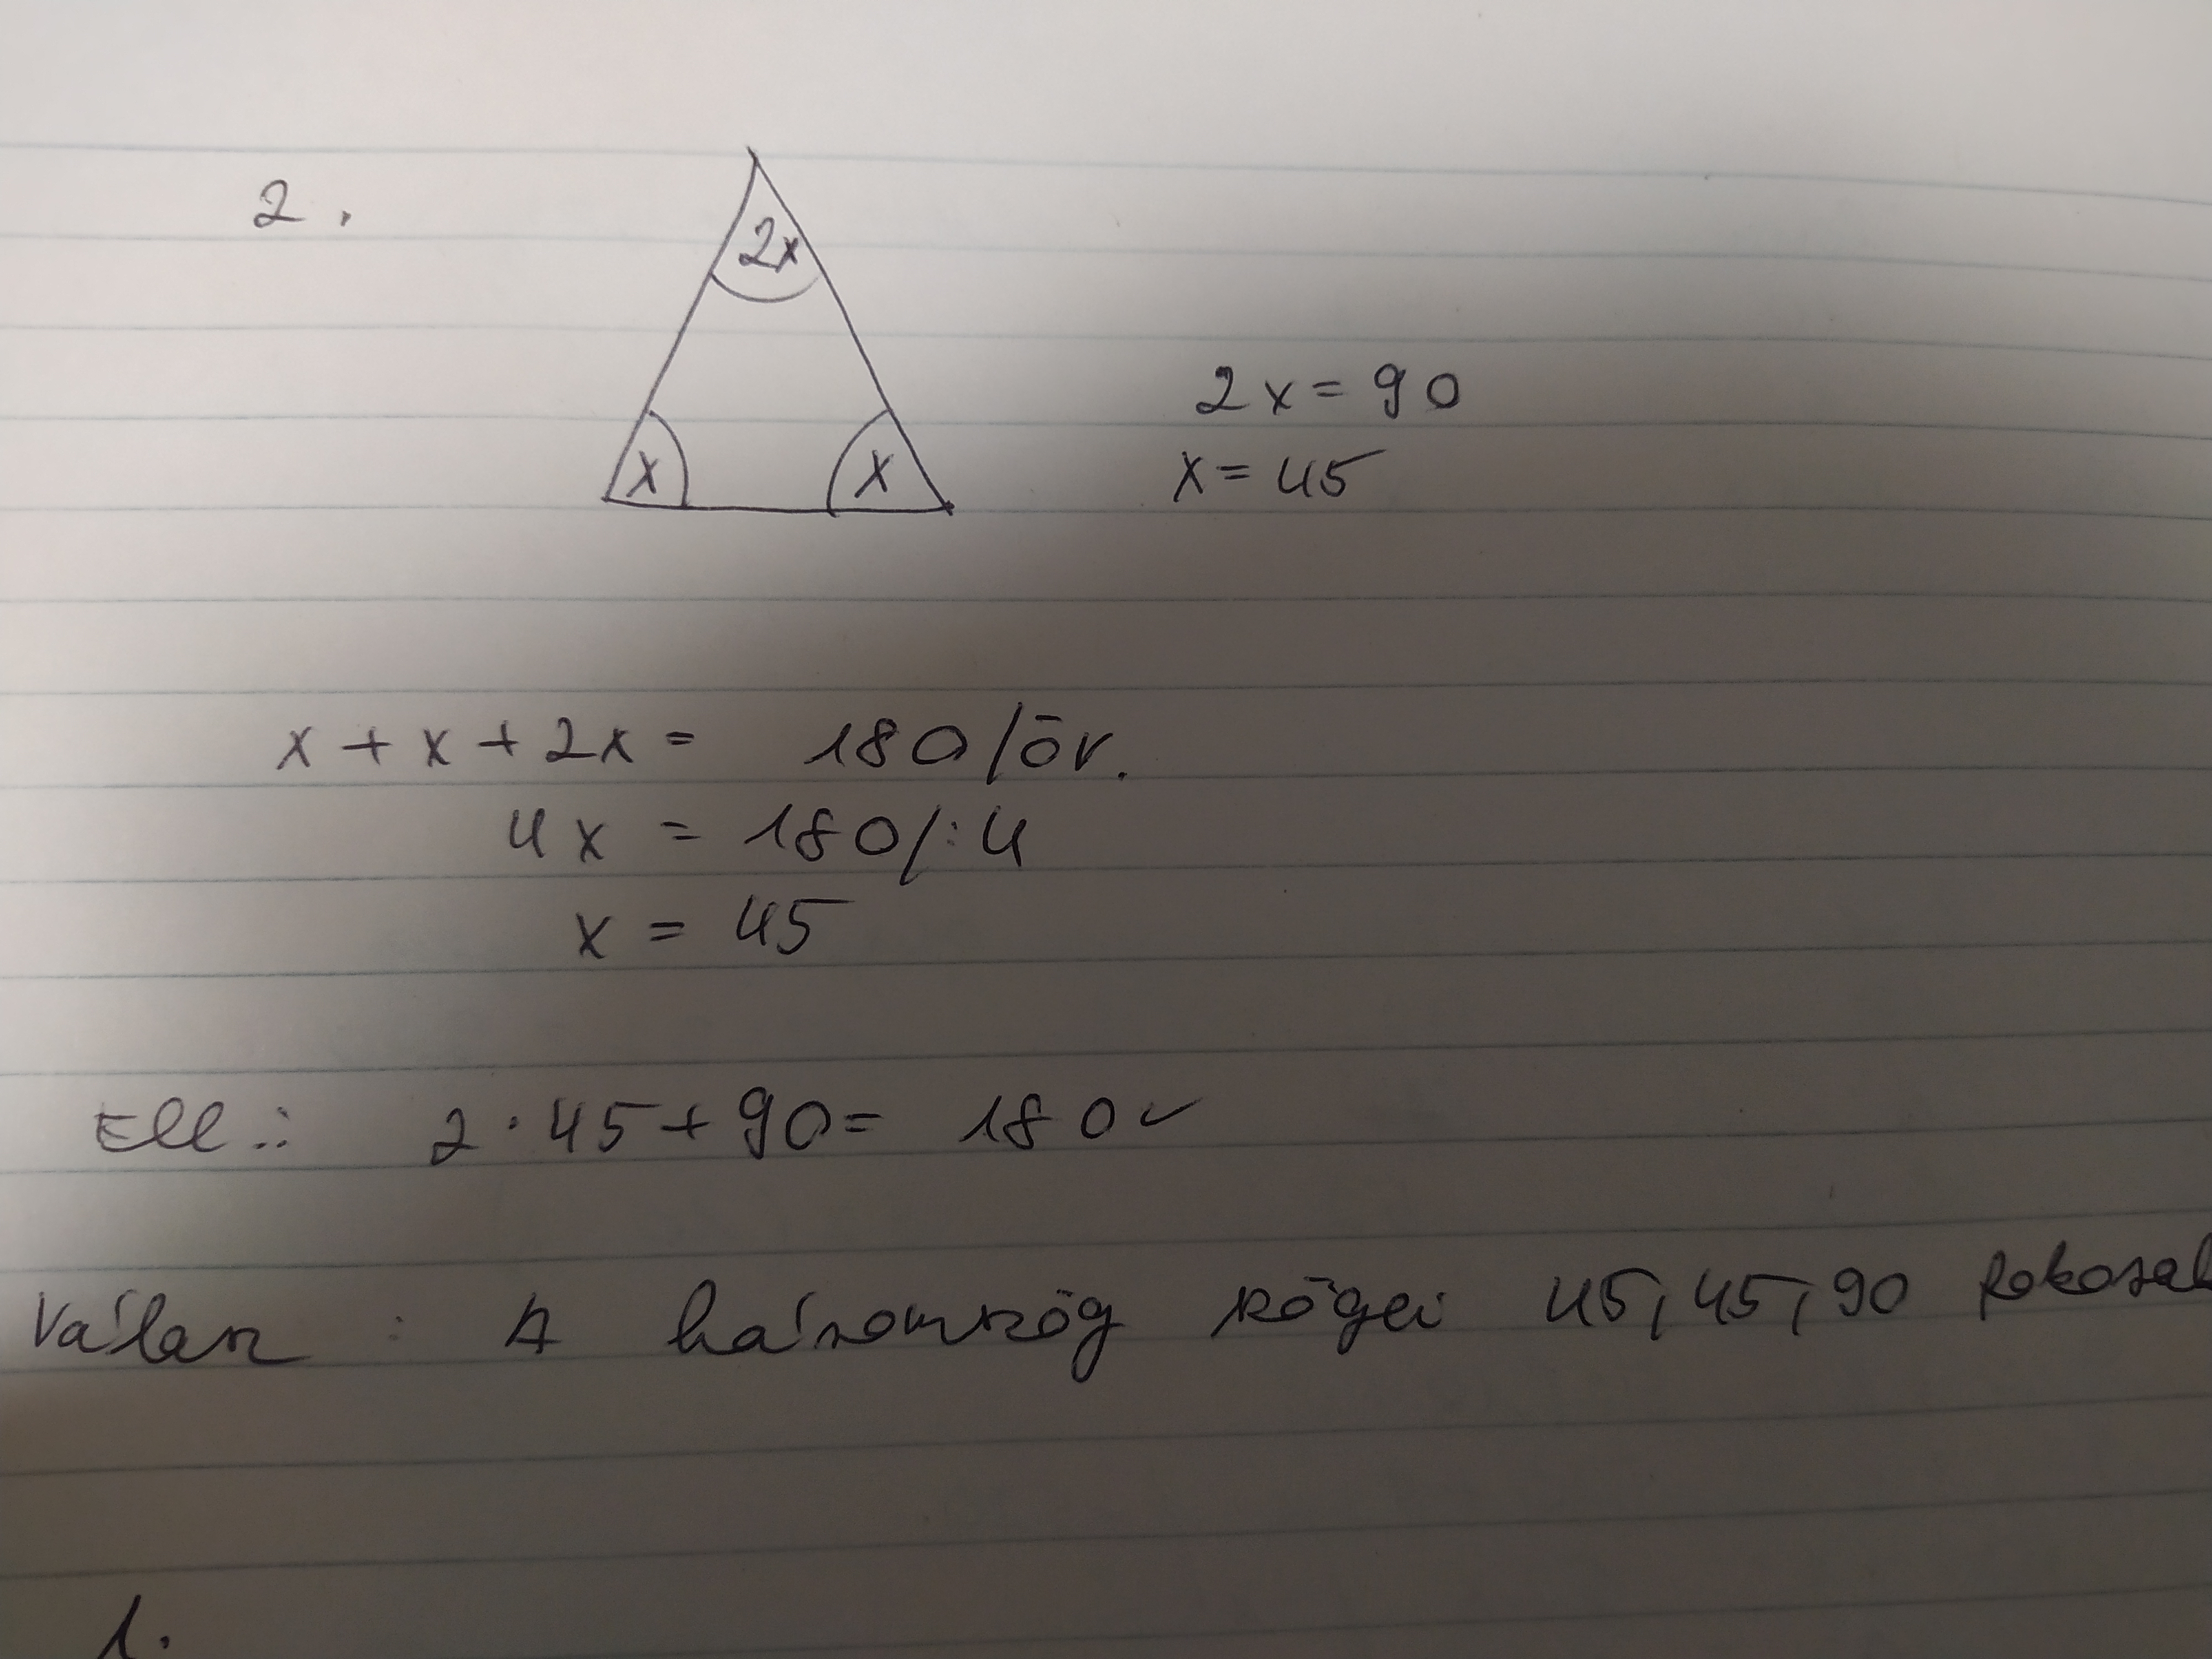 2.
2x
x x
2x = 90
x = 45
x + x + 2x = 180 /öv.
4x = 180 /:4
x = 45
Ell.: 2 · 45 + 90 = 180 ✓
Válasz: A háromszög szögei 45, 45, 90 fokosak
1.